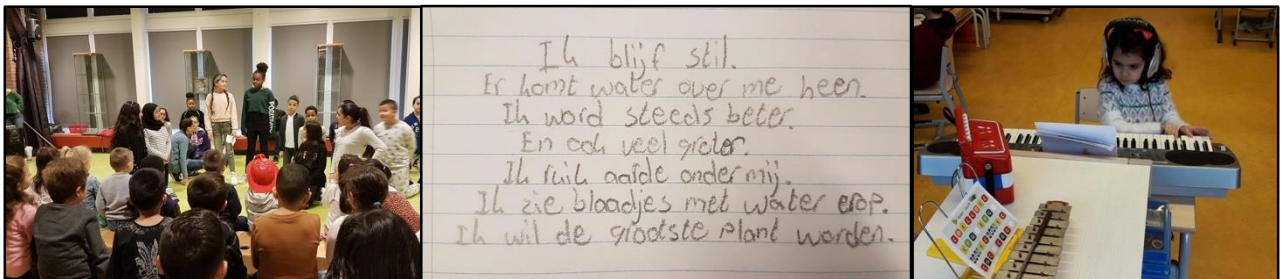 Ik blijf stil.
Er komt water over me heen.
Ik word steeds beter.
En ook veel groter.
Ik ruik aarde onder mij.
Ik zie blaadjes met water erop.
Ik wil de grootste plant worden.